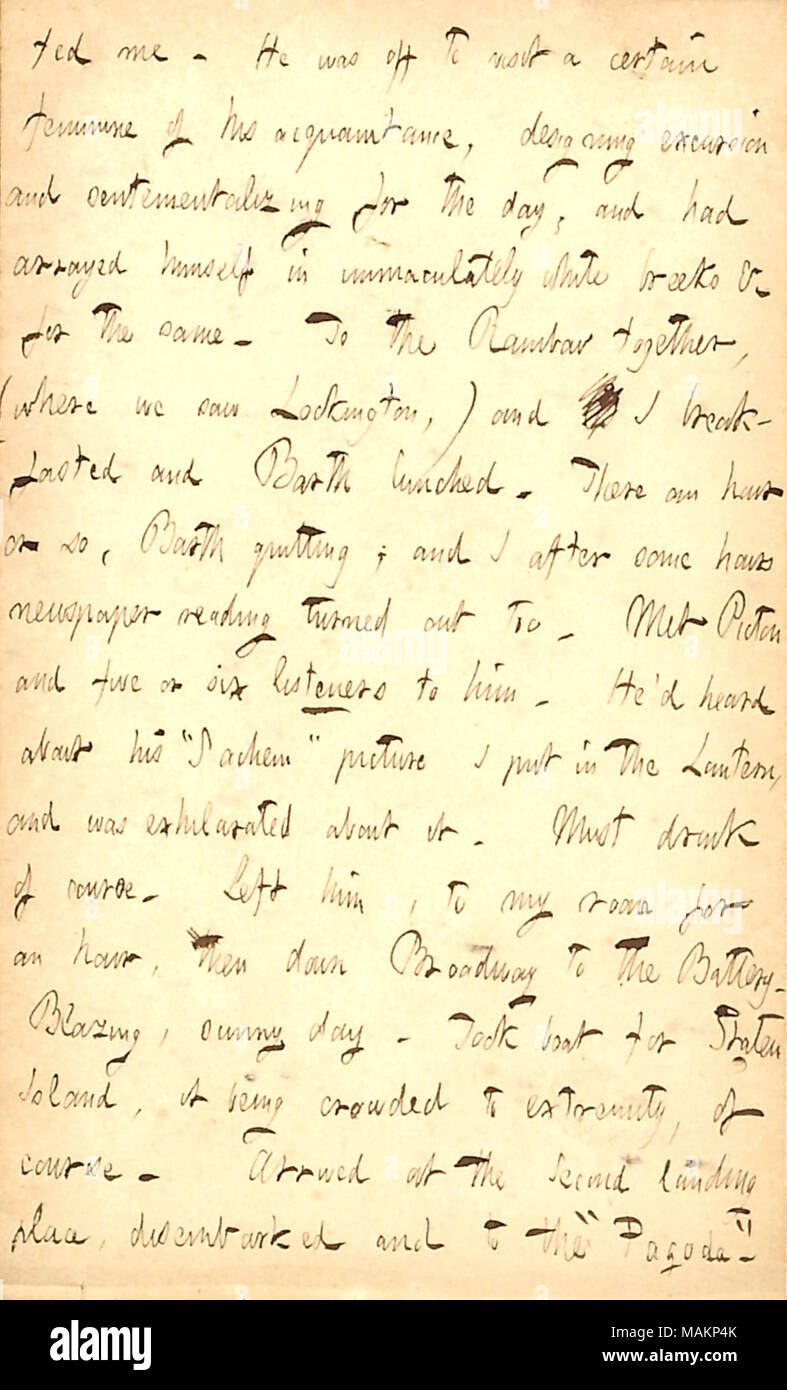 ted me - He was off to visit a certain
feminine of his acquaintance, designing excursion
and sentementalizing for the day, and had
arrayed himself in immaculately white breeks &c
for the same - To the Rainbow together,
(where we saw Lockington,) and I break-
fasted and Barth lunched - There an hour
or so, Barth quitting; and I after some hours
newspaper reading turned out too - Met Picton
and five or six listeners to him - He'd heard
about his "Sachem" picture I put in the Lantern,
and was exhilarated about it - Must drink
of course - Left him, to my room for
an hour, then down Broadway to the Battery -
Blazing, sunny day - Took boat for Staten
Island, it being crowded to extremity, of
course - Arrived at the second landing
place, disembarked and to the "Pagoda" -
alamy
Image ID: MAKP4K
www.alamy.com